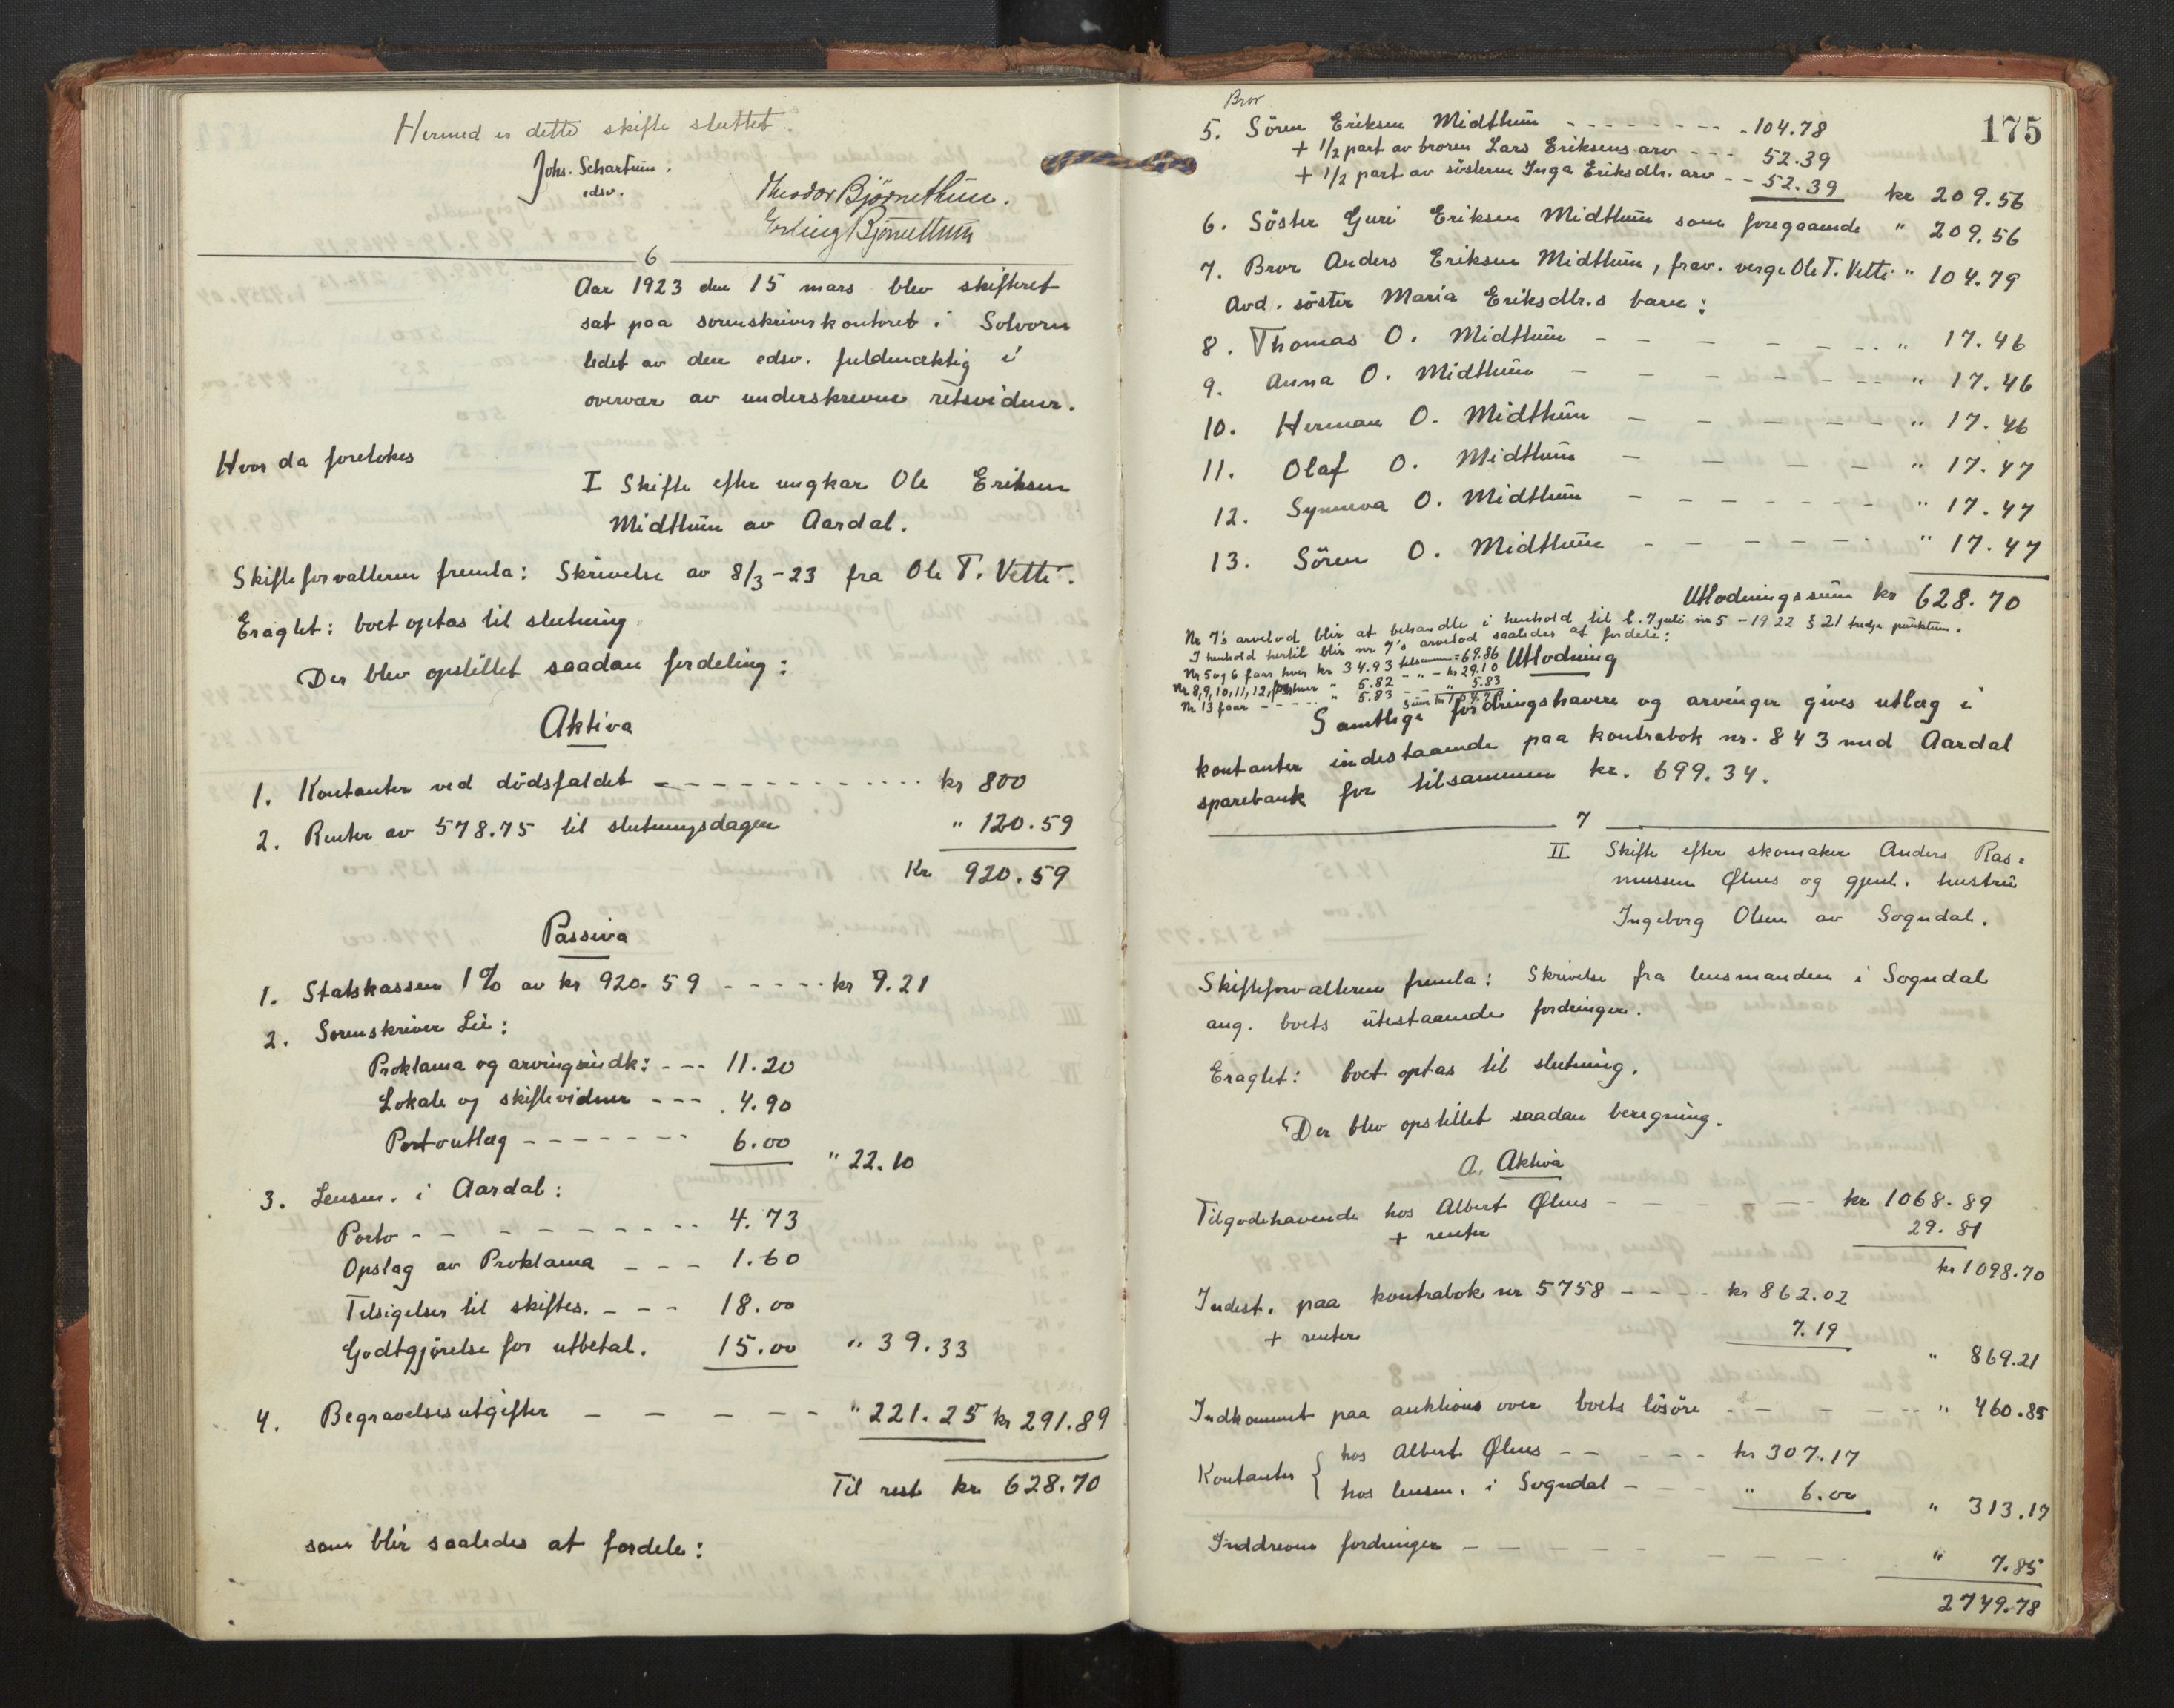 Hermed er dette skifte sluttet.
Johs. Schartum.
edsv.
Theodor Bjørnethun.
Erling Bjørnethun
6
Aar 1923 den 15 mars blev skifteret
sat paa sorenskriverkontoret i Solvorn
ledet av den edsv. fuldmæktig i
overvær av underskrevne retsvidner.
Hvor da foretokes
I Skifte efter ungkar Ole Eriksen
Midthun av Aardal.
Skifteforvalteren fremla: Skrivelse av 8/3-23 fra Ole T. Vetti.
Eragtet: boet optas til slutning
Der blev opstillet saadan fordeling:
Aktiva
1. Kontanter ved dödsfaldet - - - - - kr 800
2. Renter av 578.75 til slutningsdagen " 120.59
Kr 920.59
Passiva
1. Statskassen 1% av kr 920.59 - - - - - kr 9.21
2. Sorenskriver Lie:
Proklama og arvingsindk: - - - 11.20
Lokale og skiftevidner - - - 4.90
Portoutlæg - - - - - - - 6.00
" 22.10
3. Lensm. i Aardal:
Porto - - - - - - - - - 4.73
Opslag av Proklama - - - 1.60
Tilsigelser til skiftes. - - - 18.00
Godtgjørelse for utbetal. 15.00 " 39.33
4. Begravelsesutgifter - - - - - " 221.25 kr 291.89
Til rest kr 628.70
som blir saaledes at fordele:
175
Bror
5. Sören Eriksen Midthun - - - - - - - - 104.78
+ 1/2 part av broren Lars Eriksens arv - - - 52.39
+ 1/2 part av søsteren Inga Eriksdtr. arv - - 52.39 kr 209.56
6. Söster Guri Eriksen Midthun som foregaaende " 209.56
7. Bror Anders Eriksen Midthun, frav. verge Ole T. Vetti " 104.79
Avd. söster Maria Eriksdtr.s barn:
8. Thomas O. Midthun - - - - - - - " 17.46
9. Anna O. Midthun - - - - - - - " 17.46
10. Herman O. Midthun - - - - - " 17.46
11. Olaf O. Midthun - - - - - " 17.47
12. Synneva O. Midthun - - - - - - - " 17.47
13. Sören O. Midthun - - - - - - " 17.47
Utlodningssum kr 628.70
Nr 7's arvelod blir at behandle i henhold til l. 7 juli nr 5 - 1922 § 21 tredje punktum.
I henhold hertil blir nr 7's arvelod saaledes at fordele:
Nr 5 og 6 faar hver kr 34.93 tilsammen = 69.86
Nr 8, 9, 10, 11, 12, hver " 5.82 - " - kr 29.10
Nr 13 faar - - - - - " 5.83 - - - 5.83
Sum kr 104.79
Utlodning
Samtlige fordringshavere og arvinger gives utlæg i
kontanter indestaaende paa kontrabok nr. 843 med Aardal
sparebank for tilsammen kr. 699.34.
7
II Skifte efter skomaker Anders Ras-
mussen Ølnes og gjenl. hustru
Ingeborg Olsen av Sogndal.
Skifteforvalteren fremla: Skrivelse fra lensmanden i Sogndal
ang. boets utestaaende fordringer.
Eragtet: boet optas til slutning.
Der blev opstillet saadan beregning.
A. Aktiva
Tilgodehavende hos Albert Ølnes - - - - - kr 1068.89
+ renter 29.81
kr 1098.70
Indest. paa kontrabok nr 5758 - - - - kr 862.02
+ renter 7.19
" 869.21
Indkommet paa auktions over boets lösöre - - - - - " 460.85
Kontanter { hos Albert Ølnes - - - - - kr 307.17
hos lensm. i Sogndal - - - " 6.00
" 313.17
Inddrevne fordringer - - - - - - - - - " 7.85
2749.78